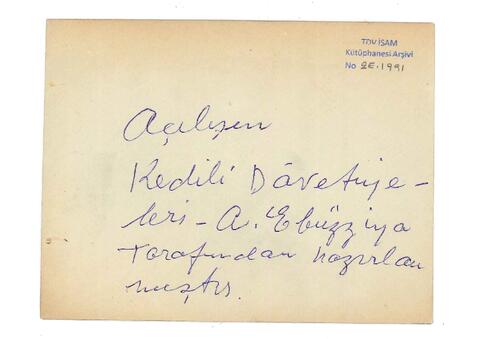 TDV İSAM
Kütüphanesi Arşivi
No 2E.1991
Açılışın
Kedili Dâvetiye-
leri - A. Ebüzziya
tarafından hazırlan
mıştır.